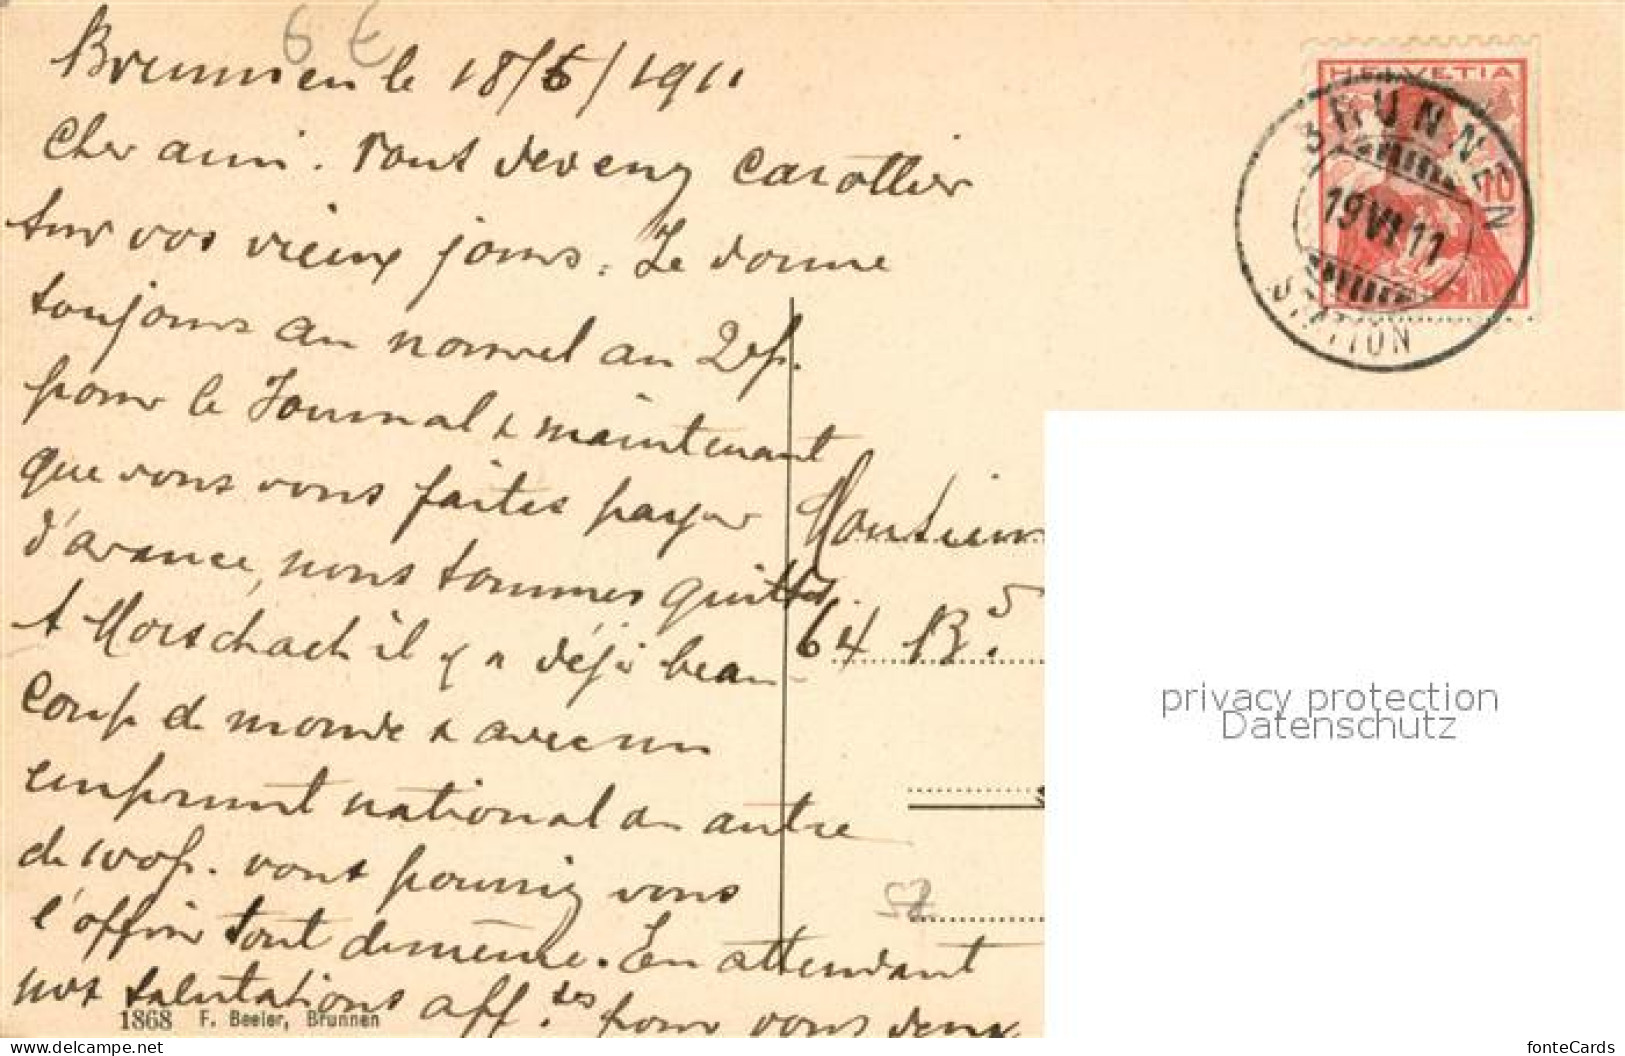 6 €
Brunnen le 18/6/1911
Cher ami. Vous devenez carottier
sur vos vieux jours. Je donne
toujours au nouvel an 2 fr.
pour le Journal & maintenant
que vous vous faites payer
d'avance, nous sommes quittes.
A Morschach il y a déjà beau-
coup de monde & avec un
emprunt national ou autre
de 100 fr. vous pourriez vous
l'offrir tout de même. En attendant
nos salutations aff.tes pour vous deux
HELVETIA
10
BRUNNEN
19 VI 11
STATION
Monsieur
64 Bd.
1868 F. Beeler, Brunnen
privacy protection
Datenschutz
www.delcampe.net
fonteCards